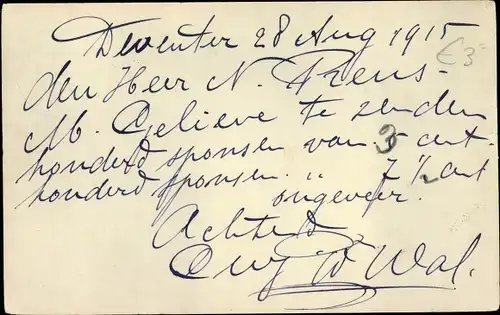 Deventer 28 Aug 1915
€3
den Heer N. Prens -
M. Gelieve te zenden
honderd sponsen van 5 cent.
honderd sponsen. „ 7½ cent
ongeveer.
Achtend
Wal.